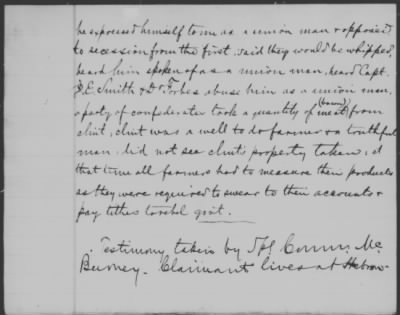 he expressed himself to me as a union man & opposed
to secession from the first. said they would be whipped,
heard him spoken of as a union man, heard Capt.
J. E. Smith & Dr. Forbes abuse him as a union man.
a party of confederates took a quantity of meat (bacon) from
clmt; clmt was a well to do farmer & a truthful
man; did not see clmt's property taken; at
that time all farmers had to measure their products
as they were required to swear to their accounts &
pay tithes to rebel govt.
Testimony taken by Spl Comr. Mc
Burney. Claimant lives at Hebron